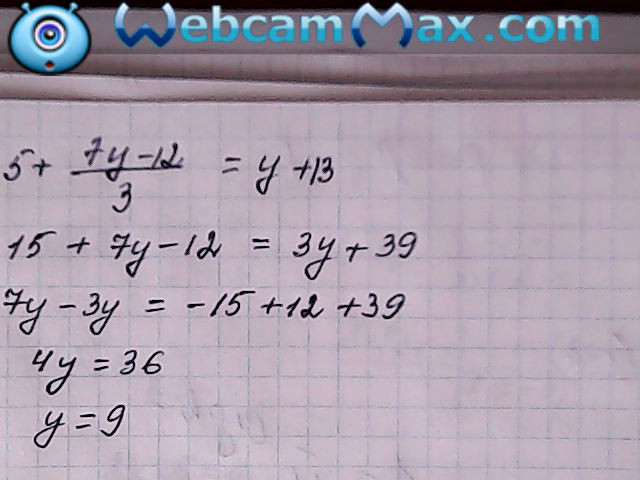 WebcamMax.com
5 + \frac{7y - 12}{3} = y + 13
15 + 7y - 12 = 3y + 39
7y - 3y = -15 + 12 + 39
4y = 36
y = 9